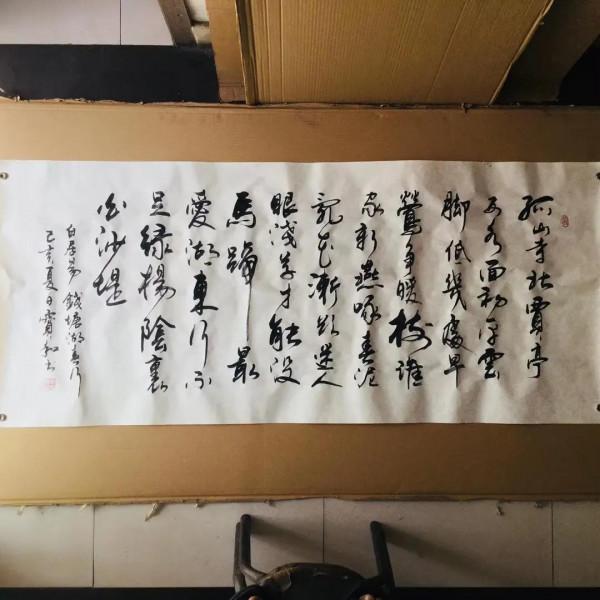 孤山寺北賈亭
西水面初平雲
脚低幾處早
鶯争暖樹誰
家新燕啄春泥
亂花漸欲迷人
眼淺草才能没
馬蹄最
愛湖東行不
足緑楊陰裏
白沙堤
白居易 錢塘湖春行
己亥夏日 和書